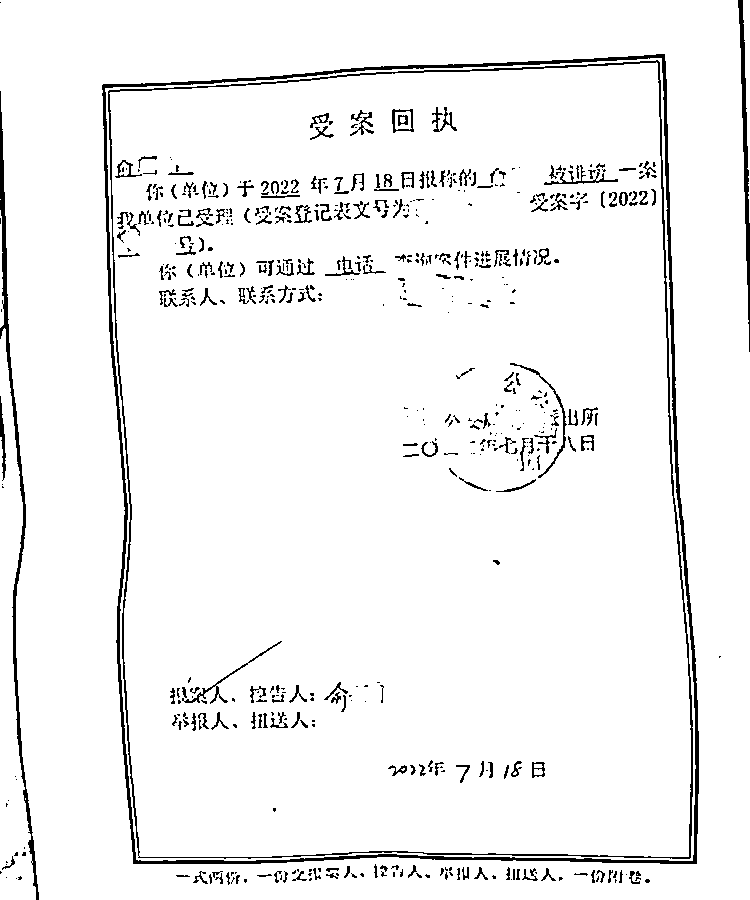 受案回执
俞
你（单位）于 2022 年 7 月 18 日报称的 被诽谤 一案
我单位已受理（受案登记表文号为 受案字〔2022〕
号）。
你（单位）可通过 电话 查询案件进展情况。
联系人、联系方式：
公安 出所
二〇二二年七月十八日
报案人、控告人：俞
举报人、扭送人：
2022年 7 月 18 日
一式两份，一份交报案人、控告人、举报人、扭送人，一份附卷。